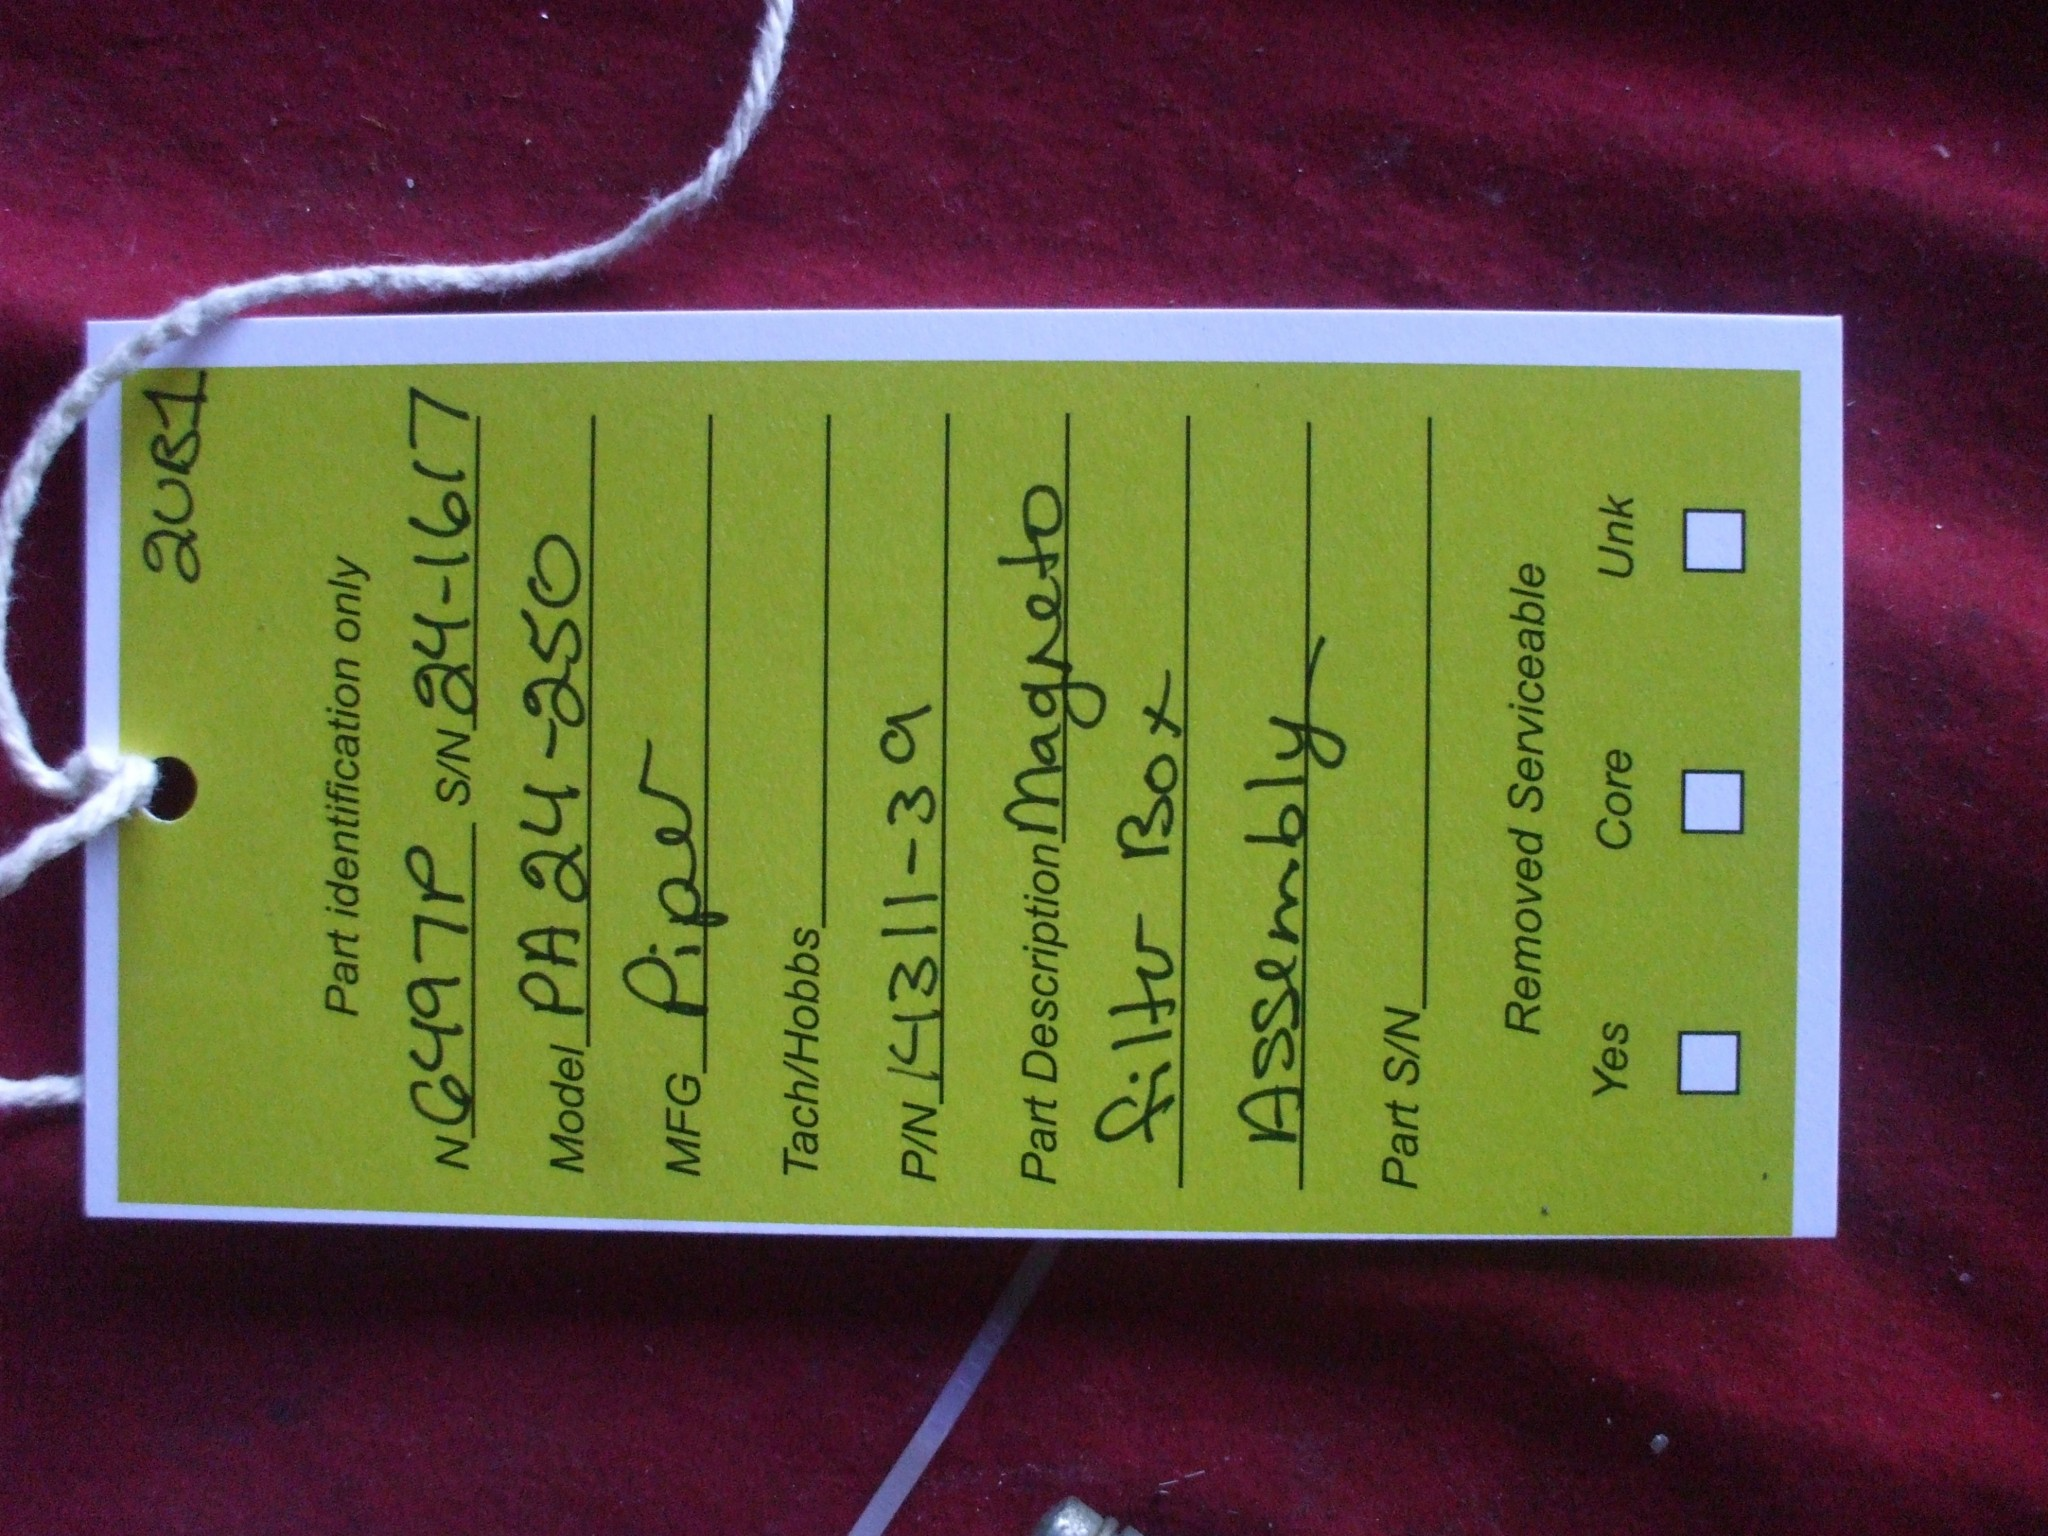 2UB1
Part identification only
N6497P S/N 24-1617
Model PA24-250
MFG Piper
Tach/Hobbs
P/N 14311-39
Part Description Magneto
filtr Box
Assembly
Part S/N
Removed Serviceable
Yes Core Unk